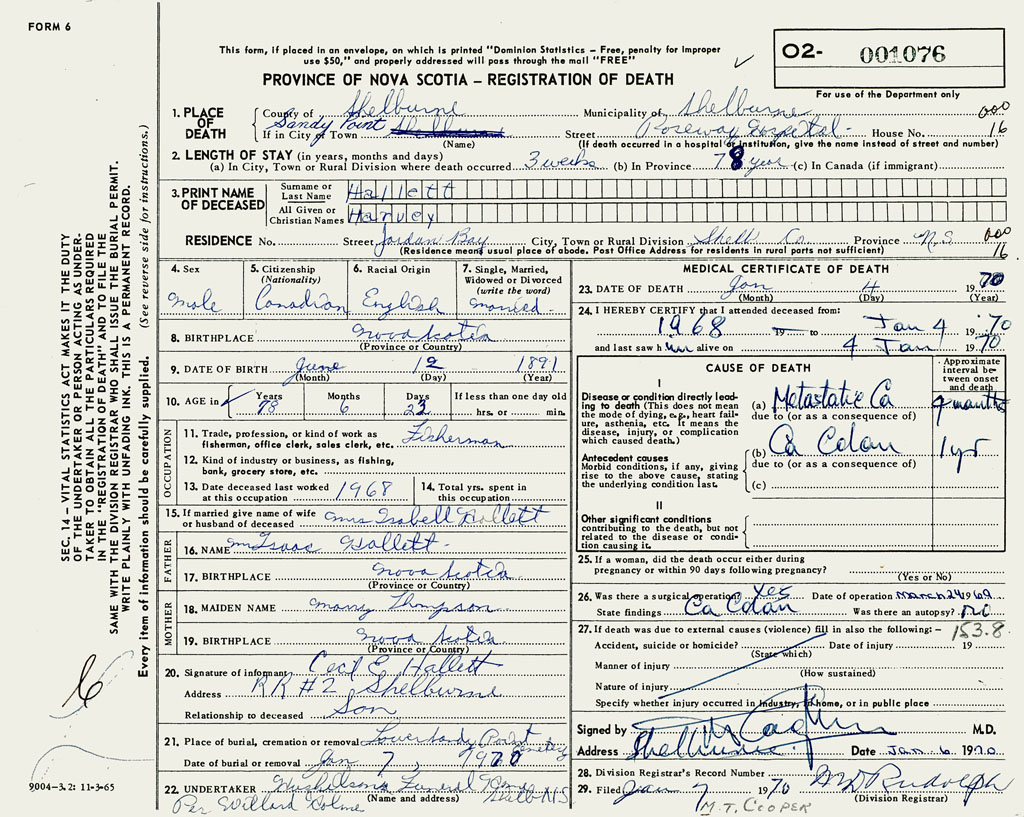 FORM 6
This form, if placed in an envelope, on which is printed "Dominion Statistics – Free, penalty for improper
use $50," and properly addressed will pass through the mail "FREE"
PROVINCE OF NOVA SCOTIA – REGISTRATION OF DEATH
O2- 001076
For use of the Department only
SEC. 14 – VITAL STATISTICS ACT MAKES IT THE DUTY
OF THE UNDERTAKER OR PERSON ACTING AS UNDER-
TAKER TO OBTAIN ALL THE PARTICULARS REQUIRED
IN THE "REGISTRATION OF DEATH" AND TO FILE THE
SAME WITH THE DIVISION REGISTRAR WHO SHALL ISSUE THE BURIAL PERMIT.
WRITE PLAINLY WITH UNFADING INK. THIS IS A PERMANENT RECORD.
Every item of information should be carefully supplied. (See reverse side for instructions.)
1. PLACE OF DEATH
County of Shelburne Municipality of Shelburne 000
If in City or Town Sandy Point Street Roseway Hospital House No. 16
(Name) (If death occurred in a hospital or institution, give the name instead of street and number)
2. LENGTH OF STAY (in years, months and days)
(a) In City, Town or Rural Division where death occurred 3 weeks (b) In Province 78 year (c) In Canada (if immigrant)
3. PRINT NAME OF DECEASED
Surname or Last Name Hallett
All Given or Christian Names Harvey
RESIDENCE No. Street Jordan Bay City, Town or Rural Division Shelb Co. Province N.S. 000
(Residence means usual place of abode. Post Office Address for residents in rural parts not sufficient) 16
4. Sex Male
5. Citizenship (Nationality) Canadian
6. Racial Origin English
7. Single, Married, Widowed or Divorced (write the word) married
8. BIRTHPLACE Nova Scotia
(Province or Country)
9. DATE OF BIRTH June 12 1891
(Month) (Day) (Year)
10. AGE in Years 78 Months 6 Days 23 If less than one day old hrs. or min.
OCCUPATION
11. Trade, profession, or kind of work as fisherman, office clerk, sales clerk, etc. Fisherman
12. Kind of industry or business, as fishing, bank, grocery store, etc.
13. Date deceased last worked at this occupation 1968
14. Total yrs. spent in this occupation
15. If married give name of wife or husband of deceased Mrs Isabell Hallett
FATHER
16. NAME Mr Isaac Hallett
17. BIRTHPLACE Nova Scotia
(Province or Country)
MOTHER
18. MAIDEN NAME Mary Thompson
19. BIRTHPLACE Nova Scotia
(Province or Country)
20. Signature of informant Cecil E. Hallett
Address RR #2 Shelburne
Relationship to deceased Son
21. Place of burial, cremation or removal Lower Sandy Point Cemetery
Date of burial or removal Jan 7, 1970
22. UNDERTAKER Funeral Home Shelb N.S.
(Name and address)
Per Willard
9004-3.2: 11-3-65
MEDICAL CERTIFICATE OF DEATH
23. DATE OF DEATH Jan 4 1970
(Month) (Day) (Year)
24. I HEREBY CERTIFY that I attended deceased from:
1968 to Jan 4 19 70
and last saw him alive on 4 Jan 19 70
CAUSE OF DEATH
Approximate interval between onset and death
I
Disease or condition directly leading to death (This does not mean the mode of dying, e.g., heart failure, asthenia, etc. It means the disease, injury, or complication which caused death.)
(a) Metastatic Ca 9 months
due to (or as a consequence of)
Antecedent causes
Morbid conditions, if any, giving rise to the above cause, stating the underlying condition last.
(b) Ca Colon 1 yr
due to (or as a consequence of)
(c)
II
Other significant conditions
contributing to the death, but not related to the disease or condition causing it.
25. If a woman, did the death occur either during
pregnancy or within 90 days following pregnancy?
(Yes or No)
26. Was there a surgical operation? Yes Date of operation March 24 1969
State findings Ca Colon Was there an autopsy? No
27. If death was due to external causes (violence) fill in also the following: – 153.8
Accident, suicide or homicide? Date of injury 19
(State which)
Manner of injury
(How sustained)
Nature of injury
Specify whether injury occurred in Industry, in home, or in public place
Signed by M.D.
Address Shelburne Date Jan 6 1970
28. Division Registrar's Record Number
29. Filed Jan 7 1970 Rudolph
(Division Registrar)
M.T. COOPER